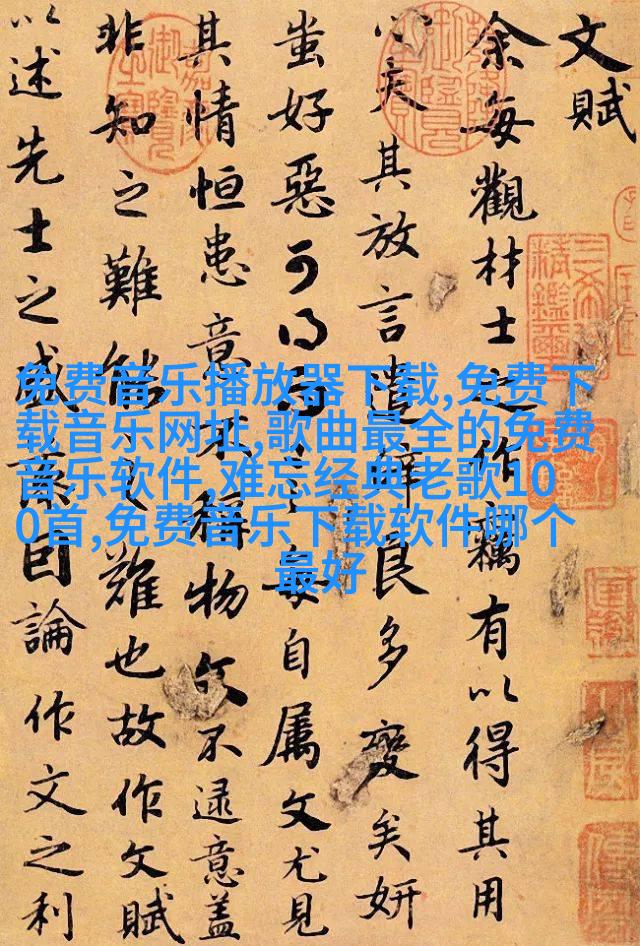 文賦
余每觀材士之作竊有以得其用
心夫其放言遣辭良多變矣妍
蚩好惡可得而言每自屬文尤見
其情恒患意不稱物文不逮意蓋
非知之難能之難也故作文賦
以述先士之盛藻因論作文之利
免费音乐播放器下载,免费下
载音乐网址,歌曲最全的免费
音乐软件,难忘经典老歌10
0首,免费音乐下载软件哪个
最好